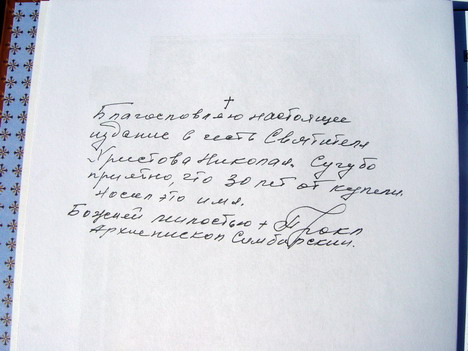 †
Благословляю настоящее
издание в честь Святителя
Христова Николая. Сугубо
приятно, что 30 лет от купели.
носил это имя.
Божией милостью + Прокл
Архиепископ Симбирский.